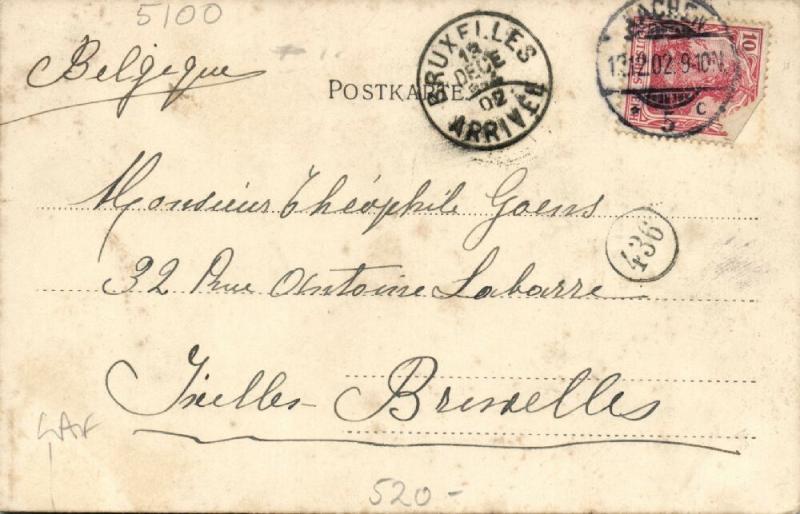 5100
Belgique
POSTKARTE
BRUXELLES
DECE
02
ARRIVEE
AACHEN
12.02. 9-10V.
* 5 c
10
Monsieur Théophile Goens
436
32 Rue Antoine Labarre
Ixelles - Bruxelles
520-